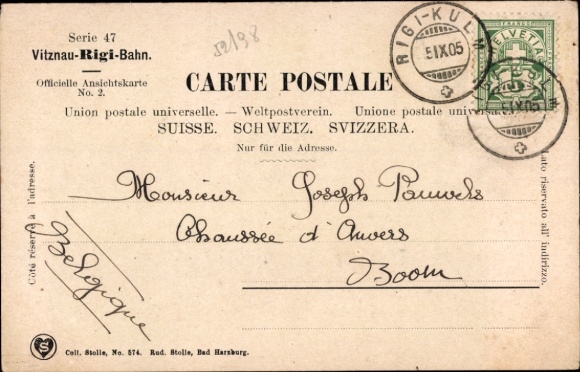 Serie 47
Vitznau-Rigi-Bahn.
Officielle Ansichtskarte
No. 2.
52/98
RIGI-KULM
5IX05
HELVETIA
FRANCO
5
5IX05
CARTE POSTALE
Union postale universelle. — Weltpostverein. Unione postale univers
SUISSE. SCHWEIZ. SVIZZERA.
Nur für die Adresse.
Côté réservé à l'adresse.
Lato riservato all' indirizzo.
Monsieur Joseph Pauwels
Chaussée d'Anvers
Boom
Belgique
Coll. Stolle, No. 574. Rud. Stolle, Bad Harzburg.